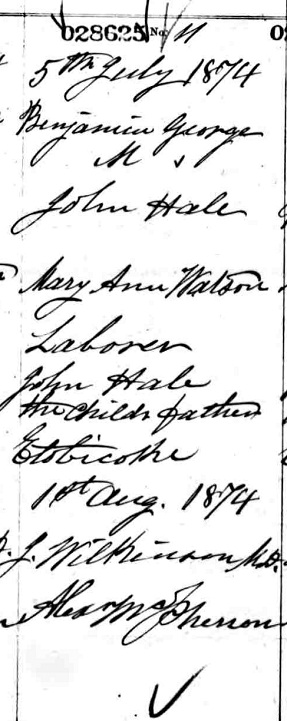 028625 No. 11
5th July 1874
Benjamin George
M
John Hale
Mary Ann Watson
Laborer
John Hale
the childs father
Etobicoke
1st Aug. 1874
J. Wilkinson M.D.
Alex McPherson